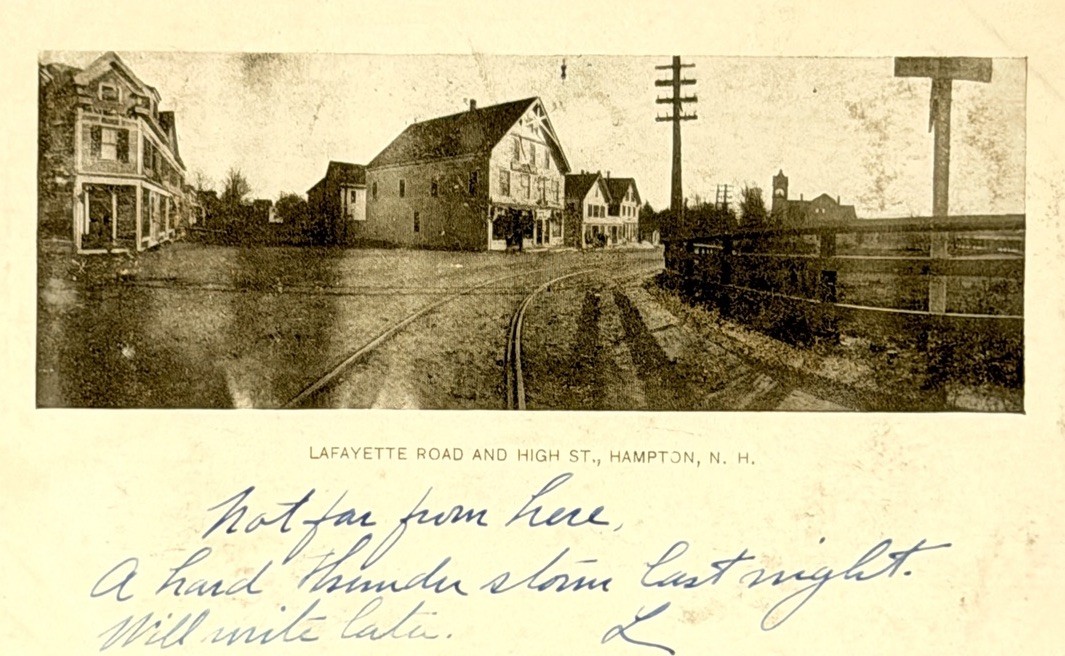 LAFAYETTE ROAD AND HIGH ST., HAMPTON, N. H.
Not far from here,
A hard thunder storm last night.
Will write later. L